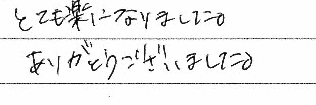 とても楽になりました。
ありがとうございました。